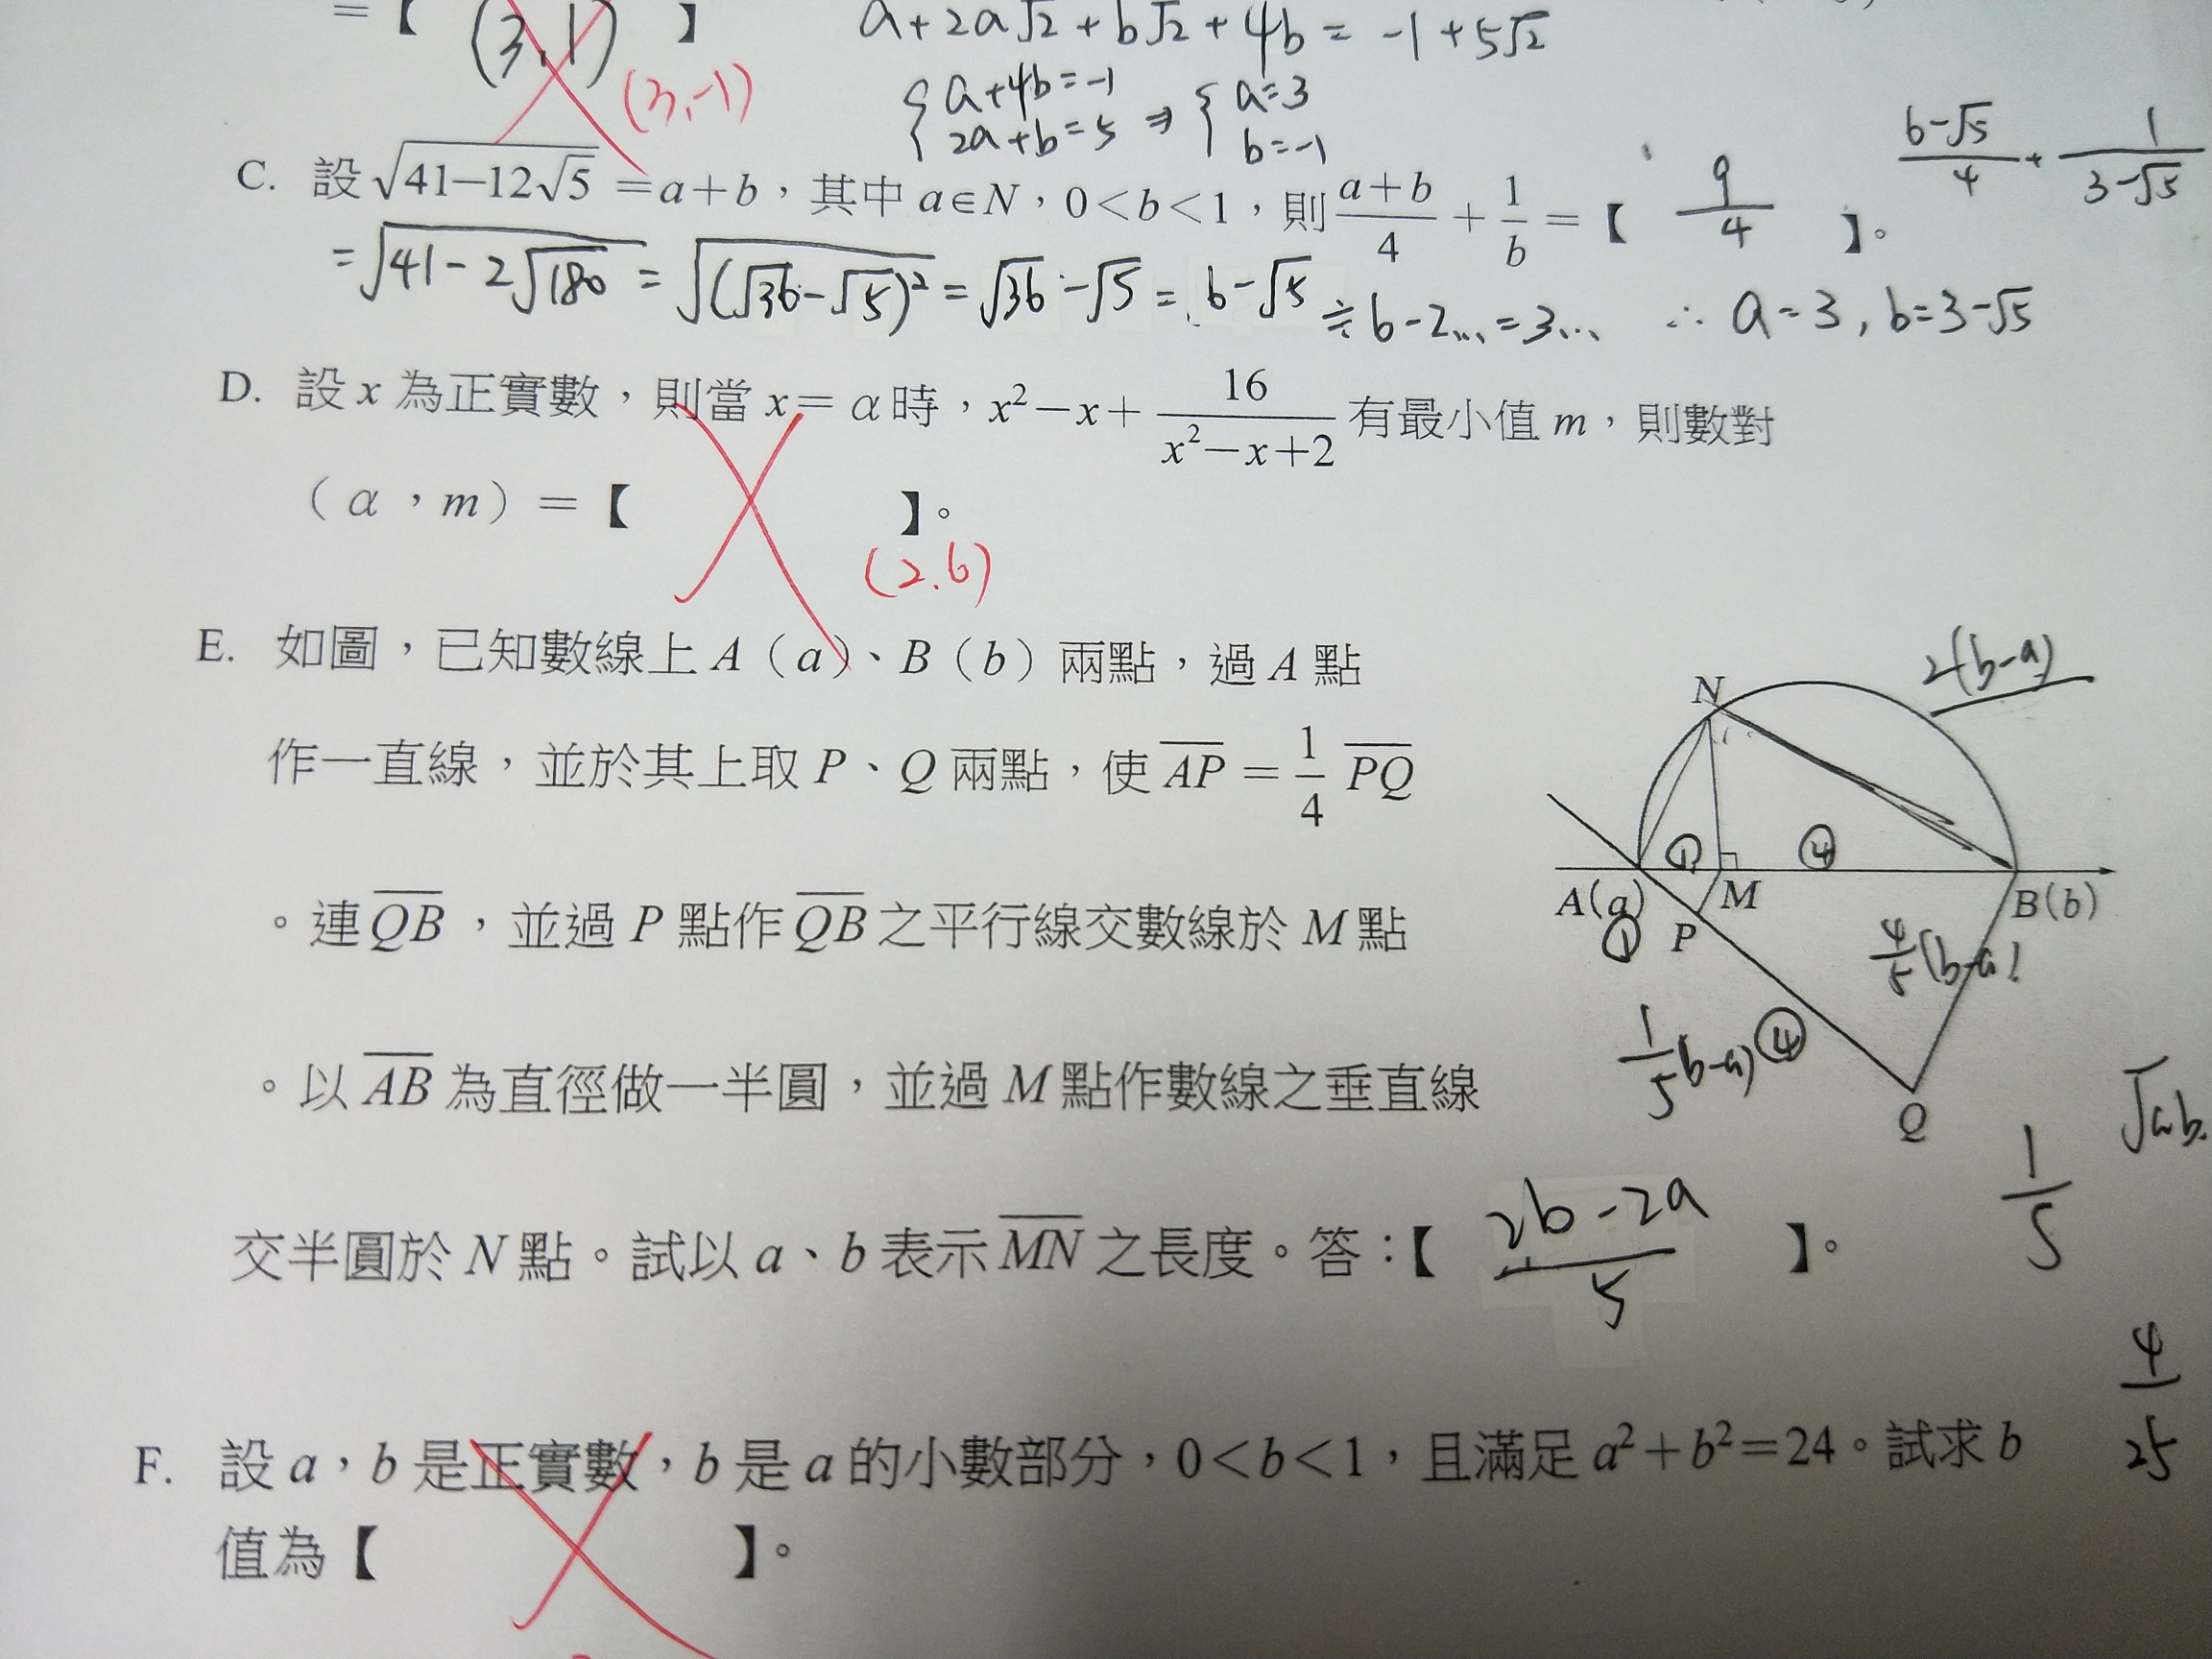 =【 (3,1) 】 a+2a√2+b√2+4b= -1+5√2
(3,-1) { a+4b=-1 ⇒ { a=3
2a+b=5 b=-1
C. 設√(41−12√5) =a+b，其中 a∈N，0<b<1，則 (a+b)/4 + 1/b =【 9/4 】。 (6-√5)/4 + 1/(3-√5)
=√(41-2√180) = √((√36-√5)²) = √36-√5 = 6-√5 ≑ 6-2... = 3... ∴ a=3, b=3-√5
D. 設 x 為正實數，則當 x= α 時，x²−x+ 16/(x²−x+2) 有最小值 m，則數對
（α，m）=【 】。
(2.6)
E. 如圖，已知數線上 A（a）、B（b）兩點，過 A 點
作一直線，並於其上取 P、Q 兩點，使 AP = 1/4 PQ
。連QB，並過 P 點作QB之平行線交數線於 M 點
。以 AB 為直徑做一半圓，並過 M 點作數線之垂直線
交半圓於 N 點。試以 a、b 表示 MN 之長度。答：【 (2b-2a)/5 】。
2(b-a)
N
① ④
A(a) M B(b)
① P
4/5(b-a)
1/5(b-a) ④
Q
√ab
1/5
4/25
F. 設 a，b 是正實數，b 是 a 的小數部分，0<b<1，且滿足 a²+b²=24。試求 b
值為【 】。